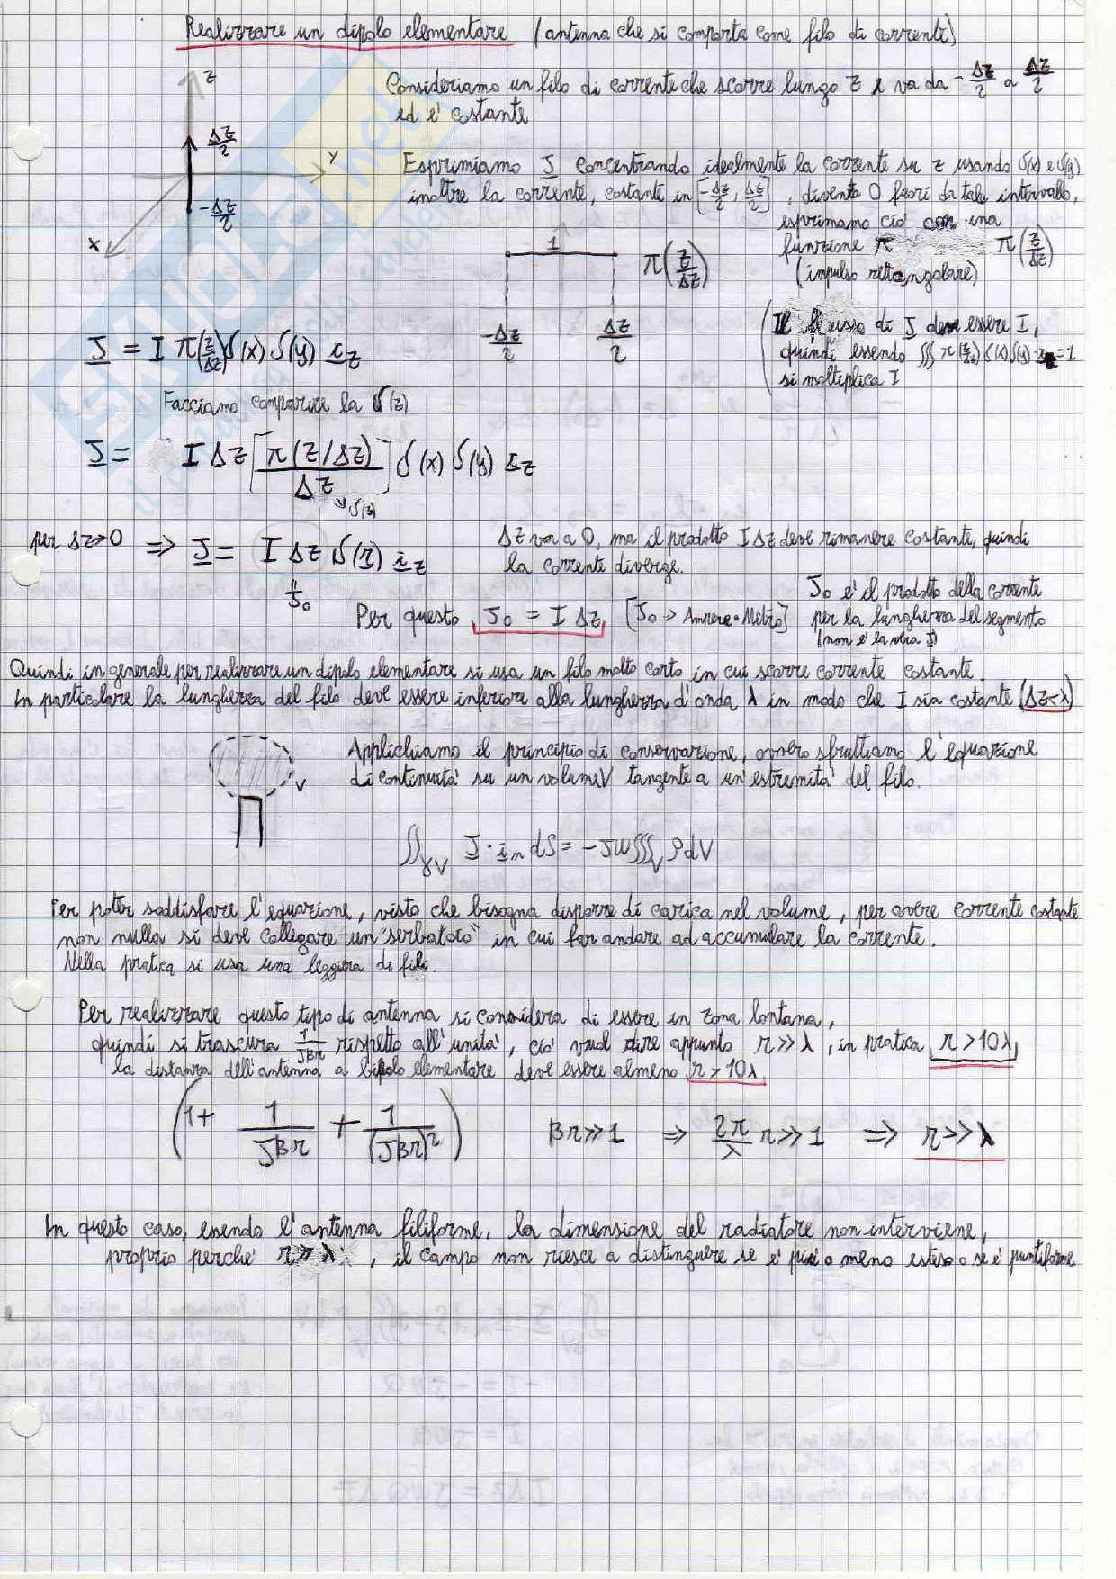 Realizzare un dipolo elementare (antenna che si comporta come filo di corrente)
Consideriamo un filo di corrente che scorre lungo z e va da -Δz/2 a Δz/2
ed e' costante
z
Δz/2
y
-Δz/2
x
Esprimiamo J concentrando idealmente la corrente su z usando δ(x) e δ(y)
inoltre la corrente, costante in [-Δz/2, Δz/2], diventa 0 fuori da tale intervallo,
esprimamo ciò con una
funzione π π(z/Δz)
(impulso rettangolare)
1
π(z/Δz)
-Δz/2 Δz/2
J = I π(z/Δz) δ(x) δ(y) i_z
(Il flusso di J deve essere I,
quindi essendo ∭ π(z/Δz) δ(x) δ(y) = 1
si moltiplica I
Facciamo comparire la δ(z)
J = I Δz [π(z/Δz)/Δz] δ(x) δ(y) i_z
δ(z)
per Δz→0 ⇒ J = I Δz δ(r) i_z
J₀
Δz va a 0, ma il prodotto I Δz deve rimanere costante, quindi
la corrente diverge.
Per questo J₀ = I Δz [J₀ → Ampere·Metro]
J₀ e' il prodotto della corrente
per la lunghezza del segmento
(non e' la vera J)
Quindi in generale per realizzare un dipolo elementare si usa un filo molto corto in cui scorre corrente costante.
In particolare la lunghezza del filo deve essere inferiore alla lunghezza d'onda λ in modo che I sia costante (Δz<λ)
V
Applichiamo il principio di conservazione, ovvero sfruttiamo l'equazione
di continuità su un volume V tangente a un'estremità del filo.
∯_∂V J · i_n dS = -jω ∭_V ρ dV
Per poter soddisfare l'equazione, visto che bisogna disporre di carica nel volume, per avere corrente costante
non nulla si deve collegare un "serbatoio" in cui far andare ad accumulare la corrente.
Nella pratica si usa una di fili.
Per realizzare questo tipo di antenna si considera di essere in zona lontana,
quindi si trascura 1/jβr rispetto all'unità, ciò vuol dire appunto r≫λ, in pratica r>10λ,
la distanza dell'antenna a dipolo elementare deve essere almeno r>10λ
(1+ 1/jβr + 1/(jβr)²) βr≫1 ⇒ 2π/λ r≫1 ⇒ r≫λ
In questo caso, essendo l'antenna filiforme, la dimensione del radiatore non interviene,
proprio perche' r≫λ, il campo non riesce a distinguere se e' più o meno esteso o se e' puntiforme